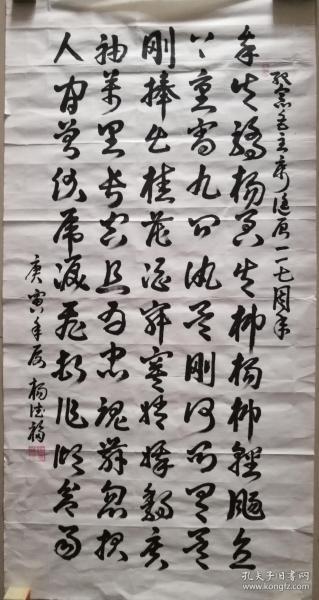 纪念毛主席诞辰一一七周年
我失骄杨君失柳杨柳轻飏直
上重霄九问讯吴刚何所有吴
刚捧出桂花酒寂寞嫦娥舒广
袖万里长空且为忠魂舞忽报
人间曾伏虎泪飞顿作倾盆雨
庚寅年 杨德福
孔夫子旧书网